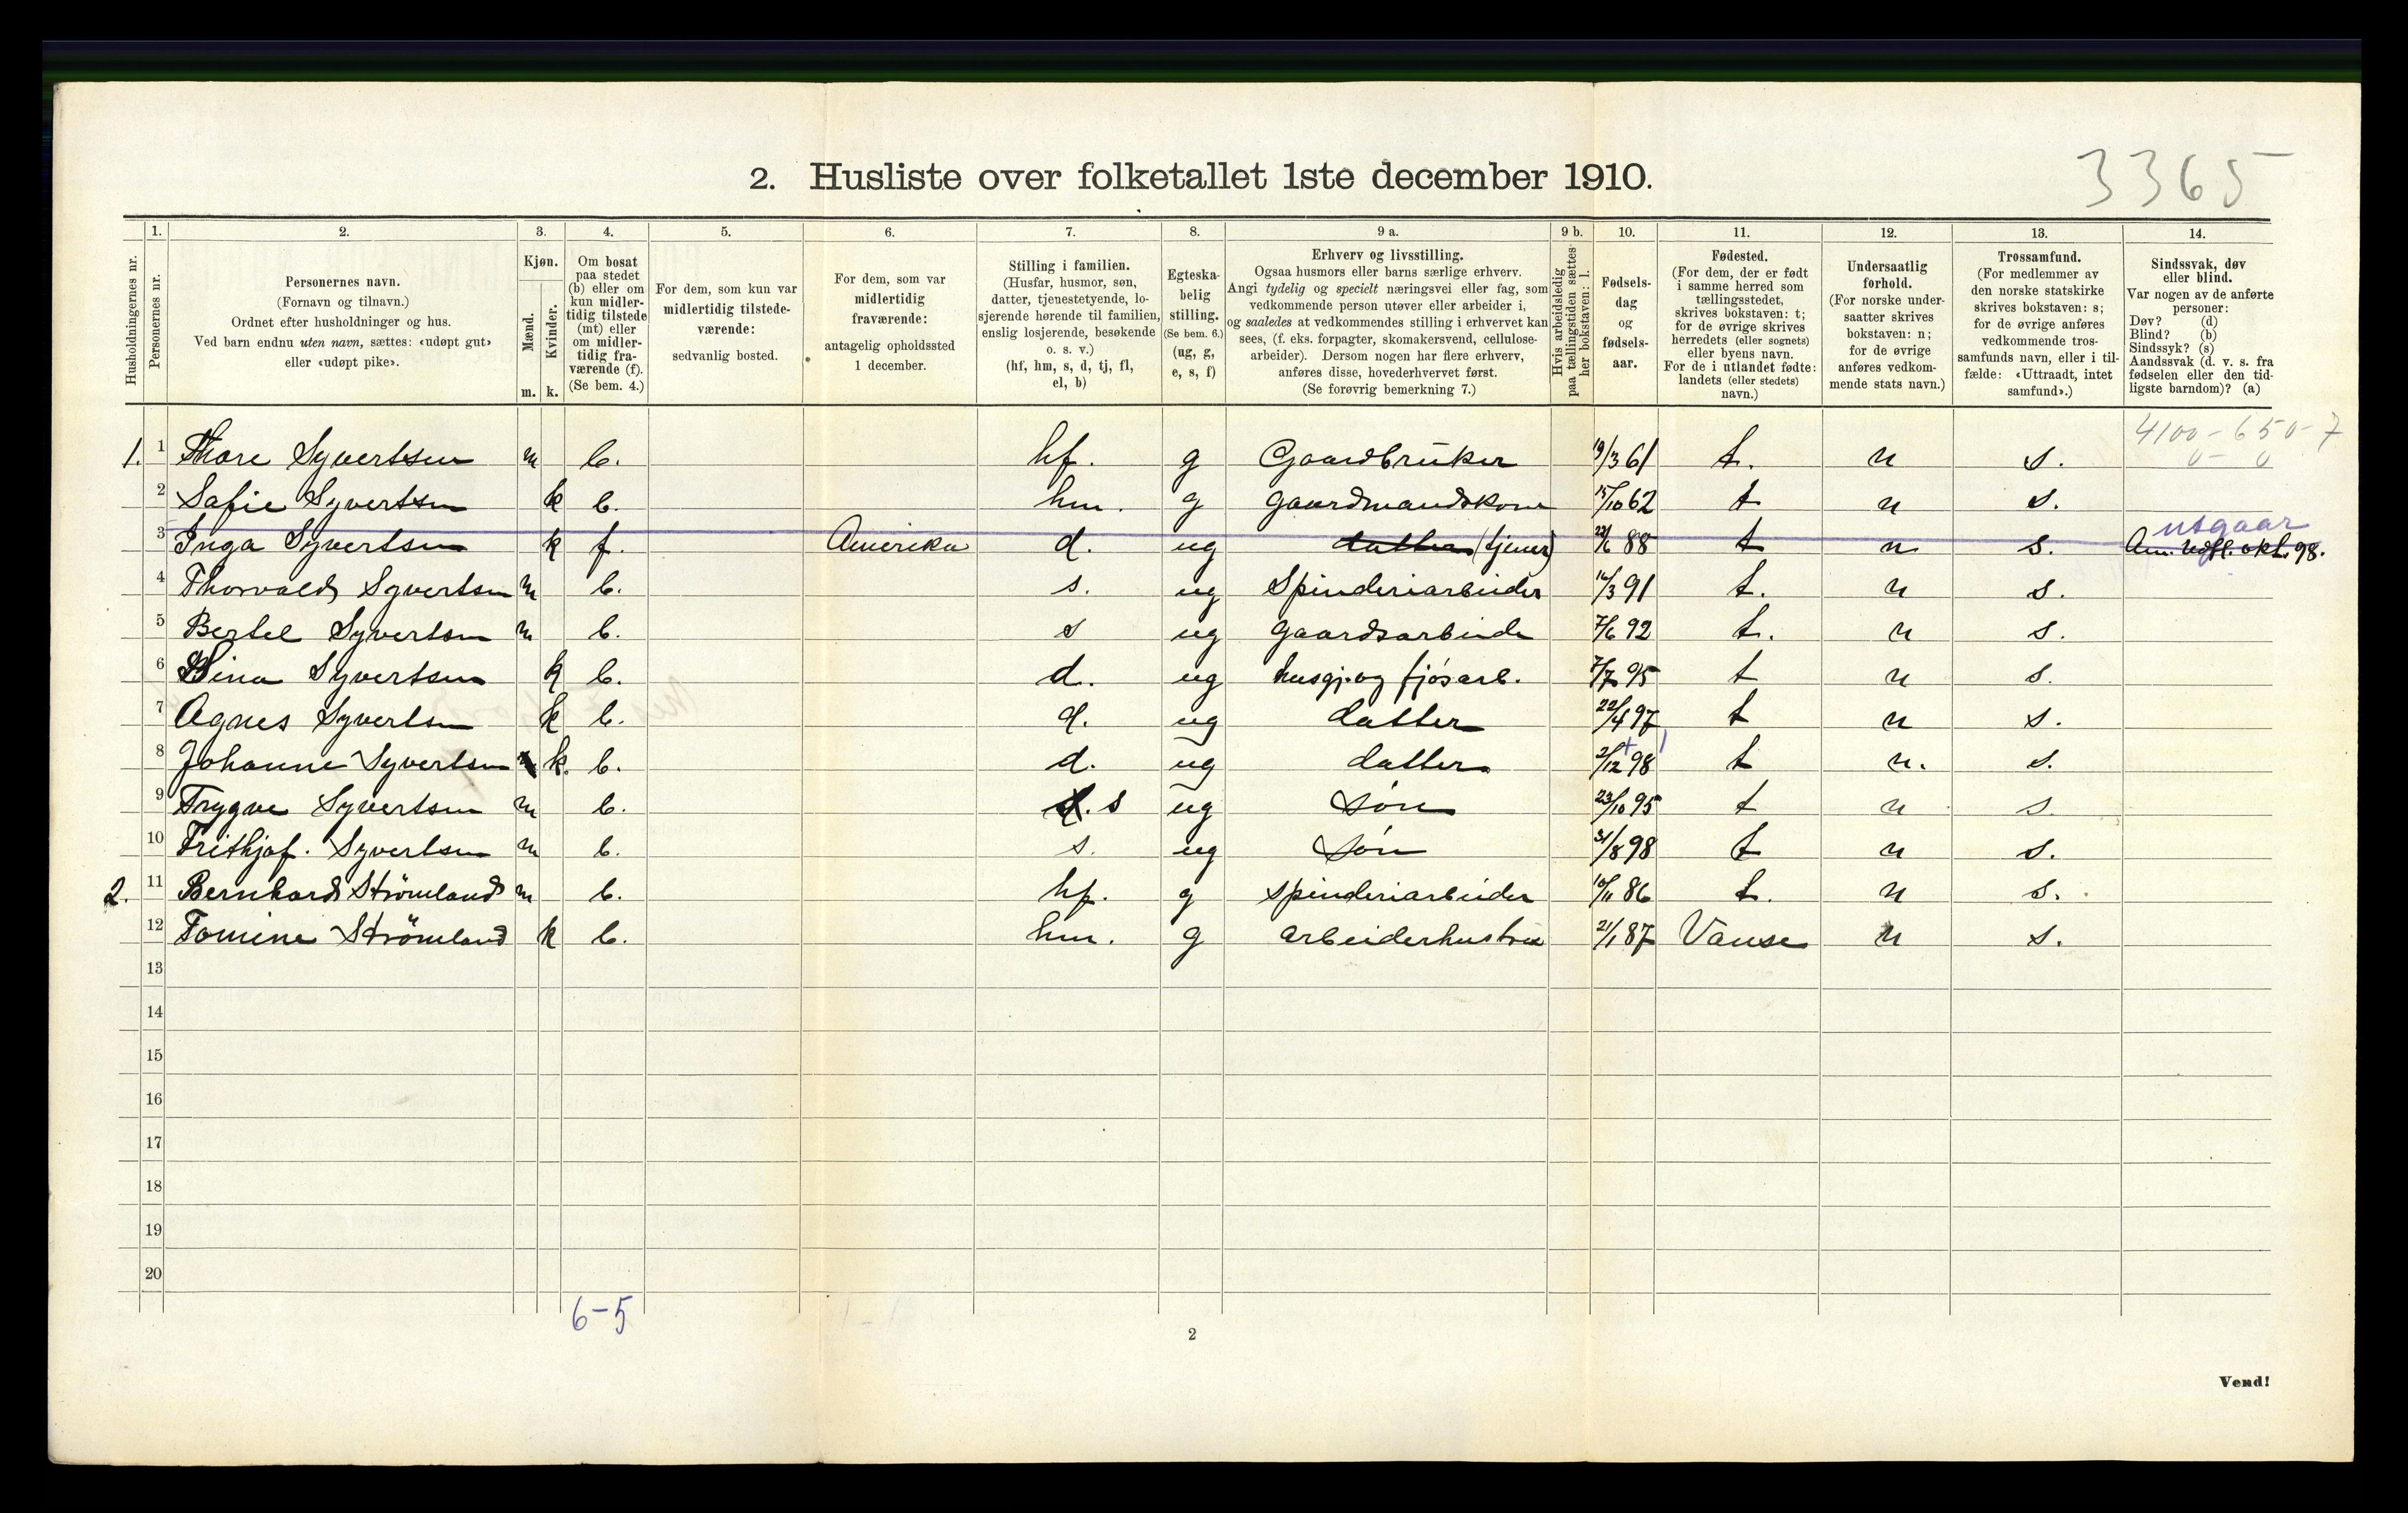 3365
2. Husliste over folketallet 1ste december 1910.
1. 2. 3. 4. 5. 6. 7. 8. 9 a. 9 b. 10. 11. 12. 13. 14.
Husholdningernes nr.
Personernes nr.
Personernes navn.
(Fornavn og tilnavn.)
Ordnet efter husholdninger og hus.
Ved barn endnu uten navn, sættes: «udøpt gut»
eller «udøpt pike».
Kjøn.
Mænd.
Kvinder.
m. k.
Om bosat
paa stedet
(b) eller om
kun midler-
tidig tilstede
(mt) eller
om midler-
tidig fra-
værende (f).
(Se bem. 4.)
For dem, som kun var
midlertidig tilstede-
værende:
sedvanlig bosted.
For dem, som var
midlertidig
fraværende:
antagelig opholdssted
1 december.
Stilling i familien.
(Husfar, husmor, søn,
datter, tjenestetyende, lo-
sjerende hørende til familien,
enslig losjerende, besøkende
o. s. v.)
(hf, hm, s, d, tj, fl,
el, b)
Egteska-
belig
stilling.
(Se bem. 6.)
(ug, g,
e, s, f)
Erhverv og livsstilling.
Ogsaa husmors eller barns særlige erhverv.
Angi tydelig og specielt næringsvei eller fag, som
vedkommende person utøver eller arbeider i,
og saaledes at vedkommendes stilling i erhvervet kan
sees, (f. eks. forpagter, skomakersvend, cellulose-
arbeider). Dersom nogen har flere erhverv,
anføres disse, hovederhvervet først.
(Se forøvrig bemerkning 7.)
Hvis arbeidsledig
paa tællingstiden sættes
her bokstaven: l.
Fødsels-
dag
og
fødsels-
aar.
Fødested.
(For dem, der er født
i samme herred som
tællingsstedet,
skrives bokstaven: t;
for de øvrige skrives
herredets (eller sognets)
eller byens navn.
For de i utlandet fødte:
landets (eller stedets)
navn.)
Undersaatlig
forhold.
(For norske under-
saatter skrives
bokstaven: n;
for de øvrige
anføres vedkom-
mende stats navn.)
Trossamfund.
(For medlemmer av
den norske statskirke
skrives bokstaven: s;
for de øvrige anføres
vedkommende tros-
samfunds navn, eller i til-
fælde: «Uttraadt, intet
samfund».)
Sindssvak, døv
eller blind.
Var nogen av de anførte
personer:
Døv? (d)
Blind? (b)
Sindssyk? (s)
Aandssvak (d. v. s. fra
fødselen eller den tid-
ligste barndom)? (a)
4100-650-7
0- 0
1. 1 Thore Syvertsen m b. hf. g Gaardbruker 19/3 61 t. n s.
2 Safie Syvertsen k b. hm. g gaardmandskone 15/10 62 t n s.
utgaar
3 Inga Syvertsen k f. Amerika d. ug datter (tjener) 22/6 88 t n s. Am. utfl. okt. 98.
4 Thorvald Syvertsen m b. s. ug Spinderiarbeider 16/3 91 t. n s.
5 Bertel Syvertsen m b. s ug gaardsarbeide 7/6 92 t. n s.
6 Sina Syvertsen k b. d. ug husgj. og fjøsarb. 7/7 95 t n s.
7 Agnes Syvertsen k b. d. ug datter 22/4 97 t n s.
8 Johanne Syvertsen k. b. d. ug datter 2/12 98 t n. s.
9 Trygve Syvertsen m b. d. s ug søn 23/10 95 t n s.
10 Frithjof. Syvertsen m b. s. ug søn 31/8 98 t n s.
2. 11 Bernhard Strömland m b. hf. g spinderiarbeider 10/11 86 t. n s.
12 Tomine Strömland k b. hm. g arbeiderhustru 21/1 87 Vanse n s.
13
14
15
16
17
18
19
20
6-5
2
Vend!